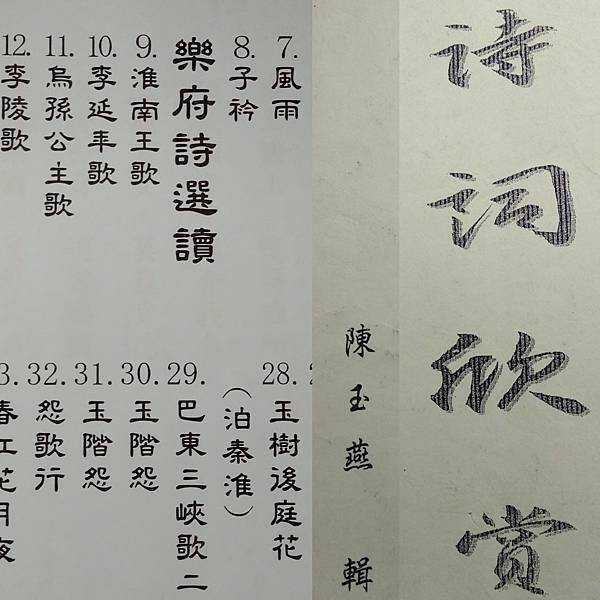 詩詞欣賞
陳玉燕 輯
7. 風雨
8. 子衿
樂府詩選讀
9. 淮南王歌
10. 李延年歌
11. 烏孫公主歌
12. 李陵歌
28. 玉樹後庭花
(泊秦淮)
29. 巴東三峽歌二
30. 玉階怨
31. 玉階怨
32. 怨歌行
3. 春江花月夜